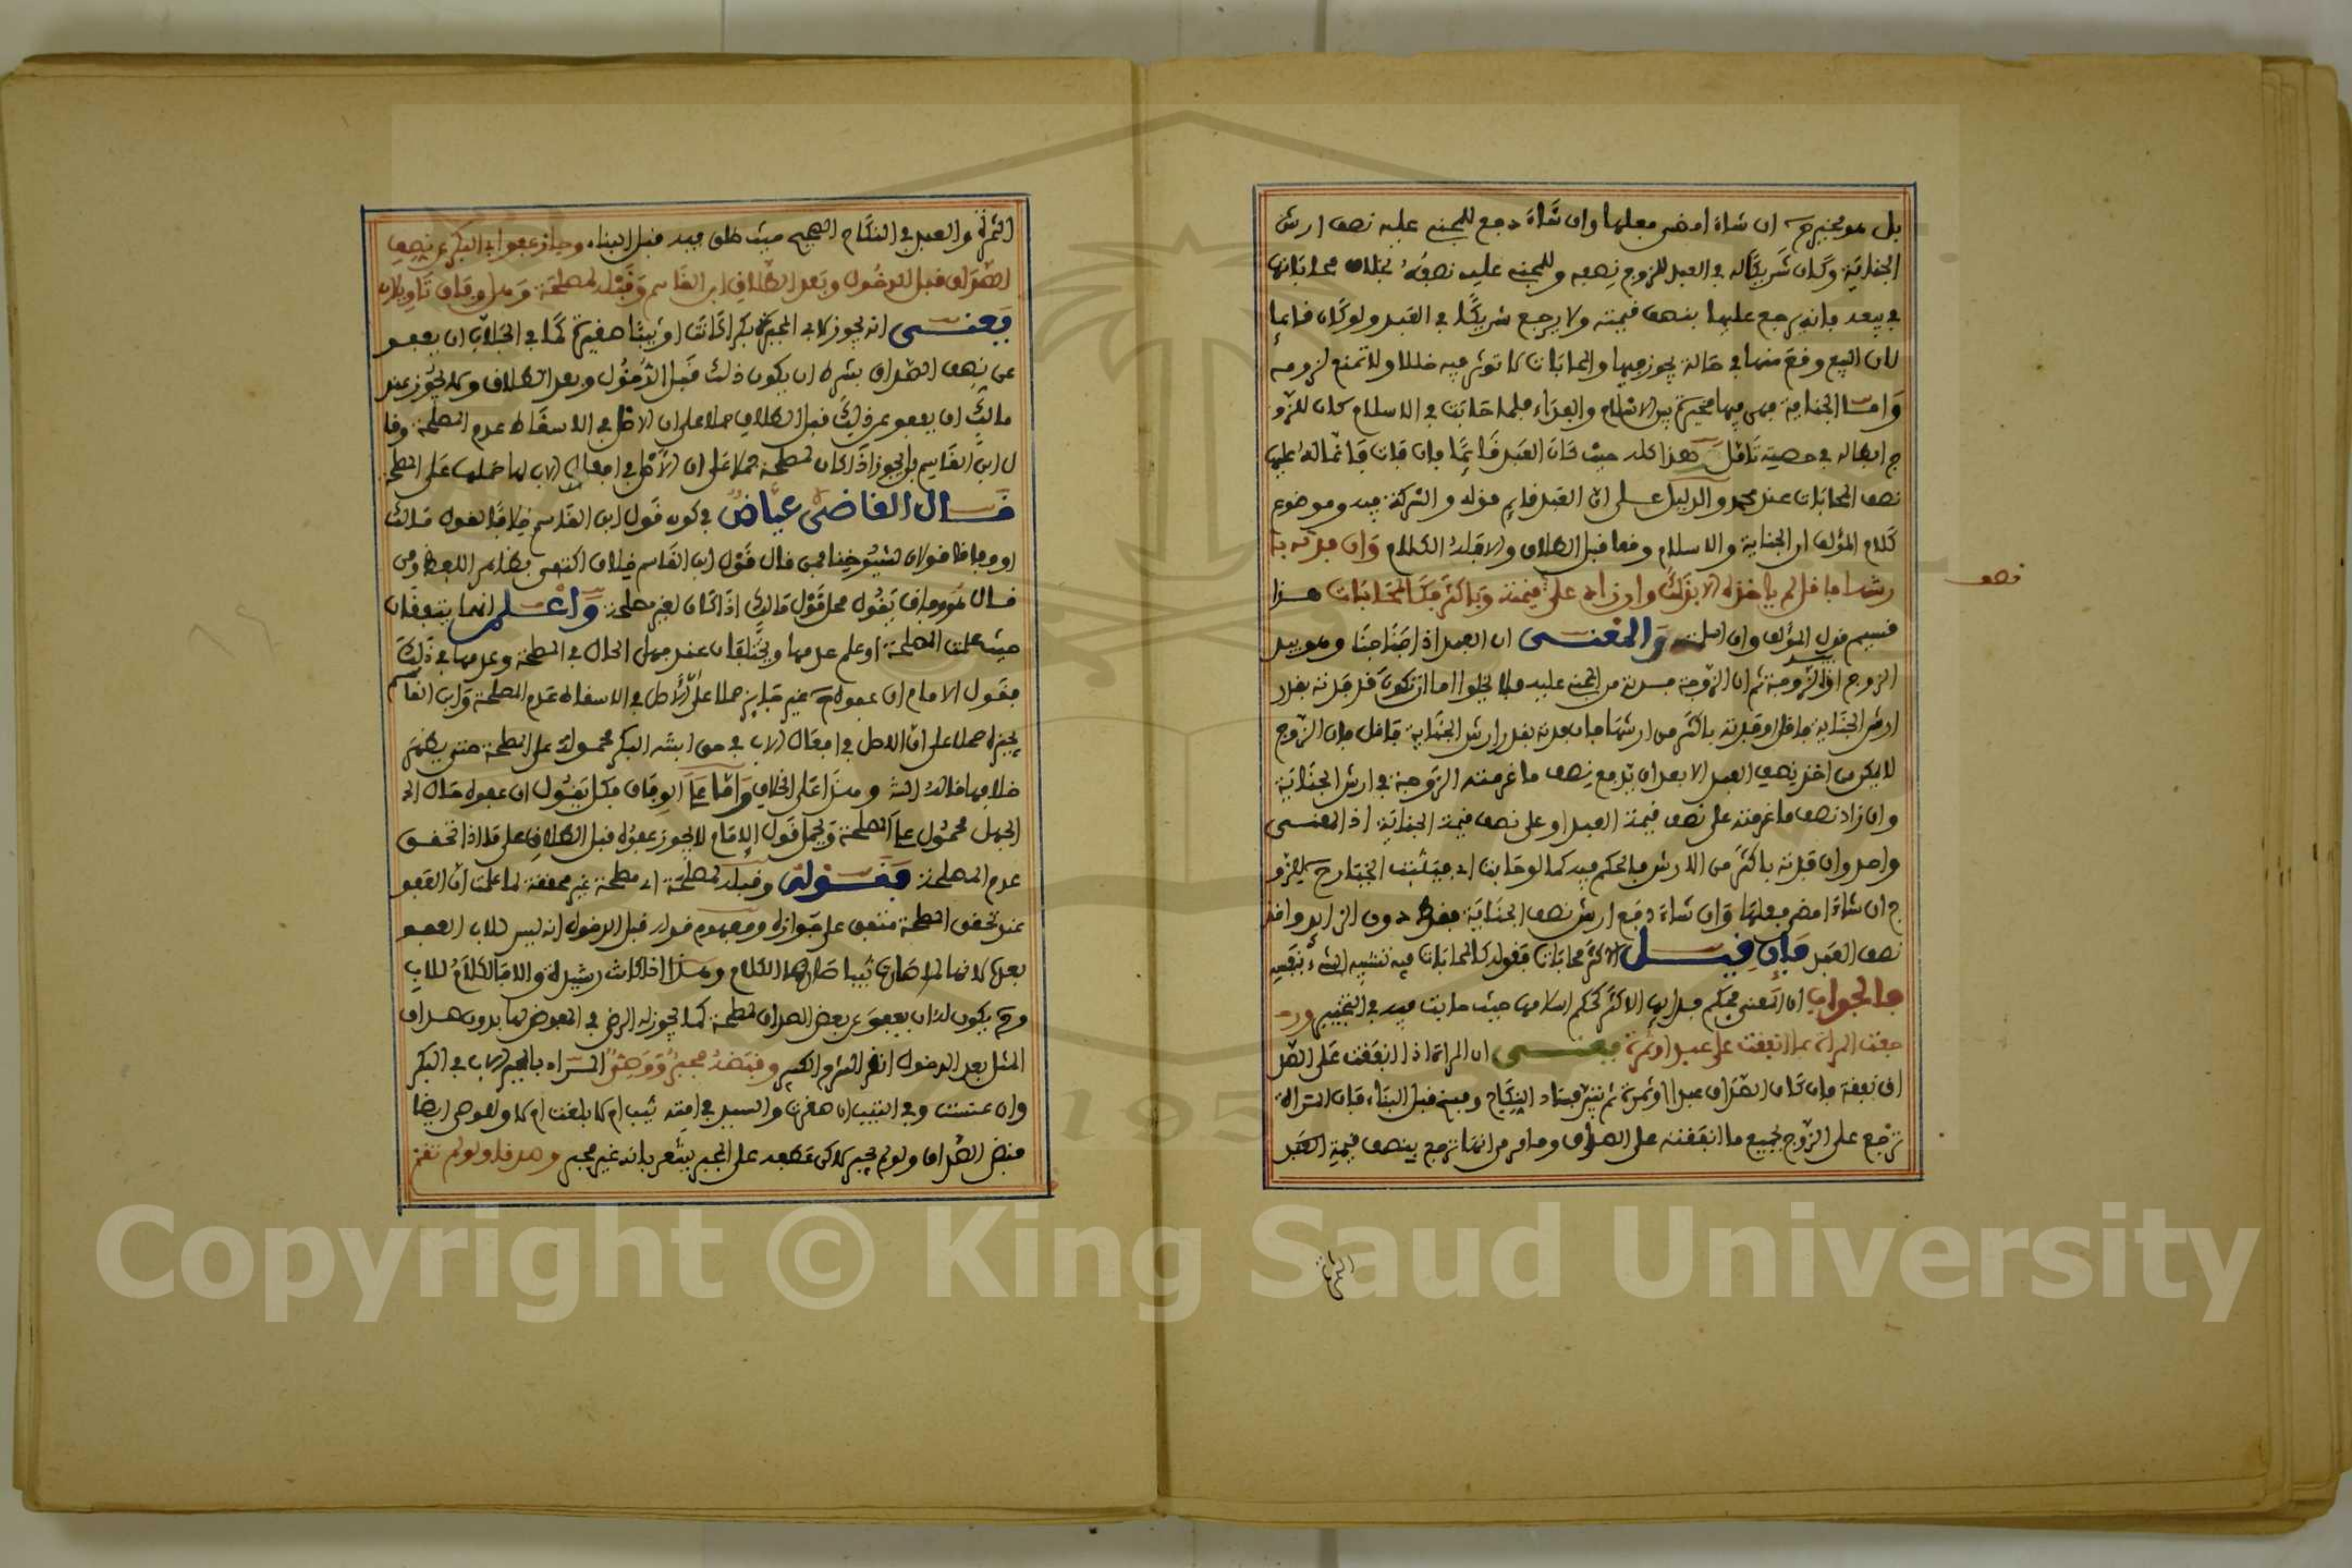 بل هو مخير ح ان شاء امضى فعلها وان شاء دفع للمجني عليه نصف ارش
الجناية وكان شريكا له في العبد للزوج نصفه وللمجني عليه نصفه بخلاف محاباتها
في بيعه فانه يرجع عليها بنصف قيمته ولا يرجع شريكا في العبد ولو كان قائما
لان البيع وقع منها في حالة يجوز فيها والمحابات لا توثر فيه خللا ولا تمنع لزومه
واما الجناية فهي فيها مخيرة بين الاسلام والفداء فلما حابت في الاسلام كان للزو
ج ابطاله في حصته تامل هذا كله حيث كان العبد قائما فان فات
نصف المحابات عند محمد والدليل على ان العبد قايم قوله والشركة فيه وموضوع
كلام المؤلف ان الجناية والاسلام وقعا قبل الطلاق والا فلا الكلام وان فدته با
نصف
رشها فاقل لم ياخذه الا بذلك وان زاد على قيمته وباكثر فكالمحابات هذا
قسيم قول المؤلف وان اسلمته والمعنى ان العبد اذا جنا وهو بيد
الزوج او الزوجة ثم ان الزوجة فدته من المجني عليه فلا يخلوا اما ان تكون قد فدته بقدر
ارش الجناية فاقل او فدته باكثر من ارشها فان فدته بقدر ارش الجناية فاقل فان الزوج
لا يمكن من اخذ نصف العبد الا بعد ان يدفع نصف ما غرمته الزوجة في ارش الجناية
وان زاد نصف ما غرمته على نصف قيمة العبد او على نصف قيمة الجناية اذ المعنى
واحد وان فدته باكثر من الارش فالحكم فيه كما لو حابت اي فيثبت الخيار ح للزو
ج ان شاء امضى فعلها وان شاء دفع ارش نصف الجناية فقط دون الزايد واخذ
نصف العبد فان قيل الاكثر محابات فقوله كالمحابات فيه تشبيه الشيء بنفسه
فالجواب ان المعنى فحكم فدايها الاكثر كحكم اسلامها حيث حابت فيه في التخيير ور
جعت المراة بما انفقت على عبد او ثمرة يعني ان المراة اذا انفقت على الصد
اق نفقة فان كان الصداق عبدا او ثمرة ثم تبين فساد النكاح وفسخ قبل البناء فان المراة
ترجع على الزوج بجميع ما انفقته على الصداق وما مر من انها ترجع بنصف قيمة العبد
الثمرة والعبد في النكاح الصحيح حيث طلق فيه قبل البناء وجاز عفو ابي البكر عن نصف
الصداق قبل الدخول وبعد الطلاق ابن القاسم وقبله لمصلحة وهل وفاق تاويلان
يعني انه يجوز لابي المجبرة بكرا كانت او ثيبا صغيرة كما في الجلاب ان يعفو
عن نصف الصداق بشرط ان يكون ذلك قبل الدخول وبعد الطلاق ولا يجوز عند
مالك ان يعفو عن ذلك قبل الطلاق حملا على ان الاصل في الاسقاط عدم المصلحة وقا
ل ابن القاسم بل يجوز اذا كان لمصلحة حملا على ان الاصل في افعال الاب لها حملها على المصلحة
قال القاضي عياض في كون قول ابن القاسم خلافا لقول مالك
او وفاقا قولان لشيوخنا فمن قال قول ابن القاسم خلاف اكتفى بظاهر اللفظ ومن
قال هو وفاق يقول محل قول مالك اذا كان لغير مصلحة واعلم انهما يتفقان
حيث علمت المصلحة او علم عدمها ويختلفان عند جهل الحال في المصلحة وعدمها في ذلك
فقول الامام ان عفوه ح غير جايز حملا على الاصل في الاسقاط عدم المصلحة وابن القاسم
يجيزه حملا على ان الاصل في افعال الاب في حق ابنته البكر محمولة على المصلحة حتى يظهر
خلافها وهذا على الخلاف واما على الوفاق فكل يقول ان عفوه حال
الجهل محمول على المصلحة ويحمل قول الامام لا يجوز عفوه قبل الطلاق على ما اذا تحقق
عدم المصلحة فقوله وقبله لمصلحة اي مصلحة غير محققة لما علمت ان العفو
عند تحقق المصلحة متفق على جوازه ومفهوم قوله قبل الدخول انه ليس للاب العفو
بعده لانها لما صارت ثيبا صار لها الكلام وهذا اذا كانت رشيدة والا فالكلام للاب
وح يكون له ان يعفو عن بعض الصداق لمصلحة كما يجوز له الرضى في المعوض لها بدون صداق
المثل بعد الدخول انظر الشرح الكبير وقبضه مجبر ووصي المراد بالمجبر الاب في البكر
وان عنست وفي الثيب ان صغرت والسيد في امته ثيب ام لا بلغت ام لا والوصي ايضا
قبض الصداق ولو لم يجبر لاكن عطفه على المجبر يشعر بانه غير مجبر وصدقا ولو لم تقم